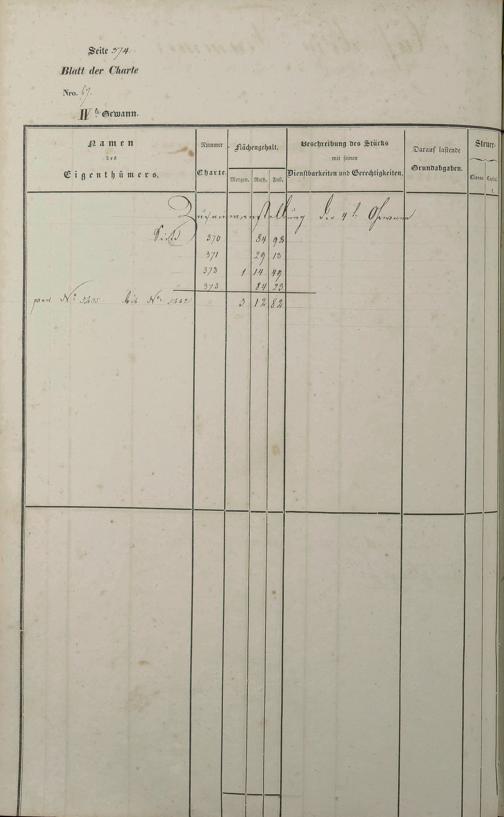 Seite 374
Blatt der Charte
Nro. 67.
IVte Gewann.
Namen des Eigenthümers.
Nummer Charte
Flächengehalt.
Morgen. Ruth. Fuß.
Beschreibung des Stücks mit seinen Dienstbarkeiten und Gerechtigkeiten.
Darauf lastende Grundabgaben.
Steuer-
Classe. Capital.
Zusammenstellung der 4t Gewann
Seite 370 84 98
371 29 12
373 1 14 49
373 84 23
3 12 82